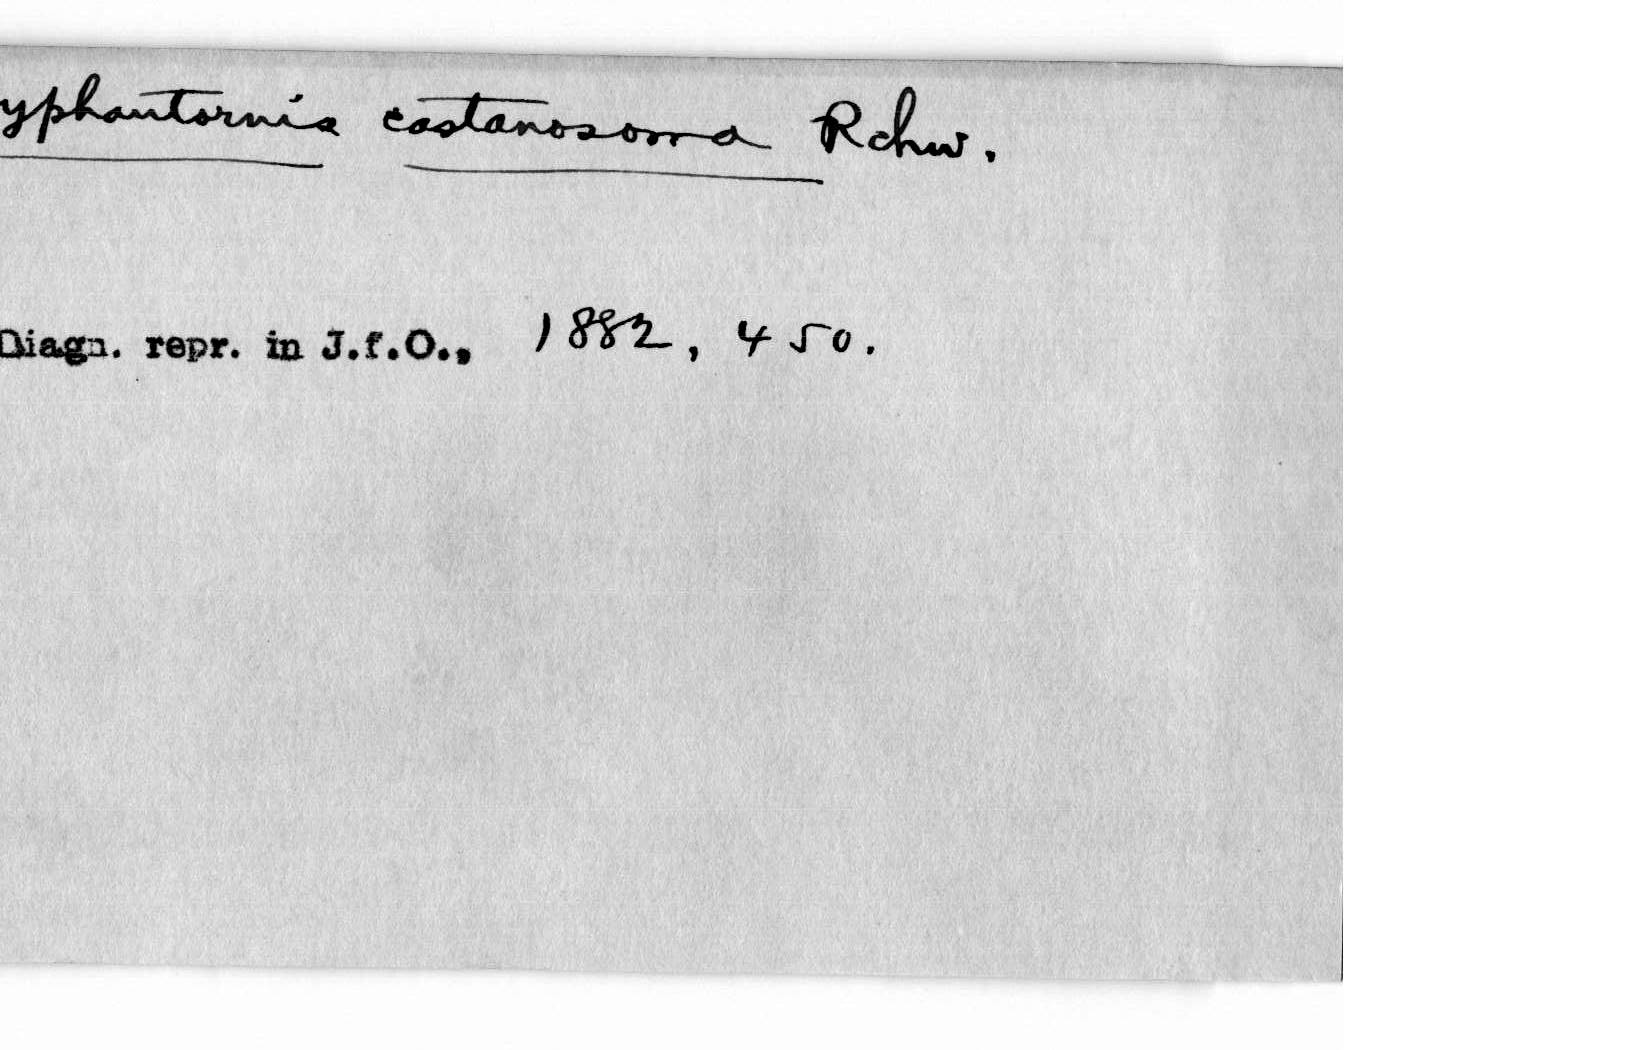 yphantornis castanosoma Rchw.
Diagn. repr. in J.f.O., 1882, 450.